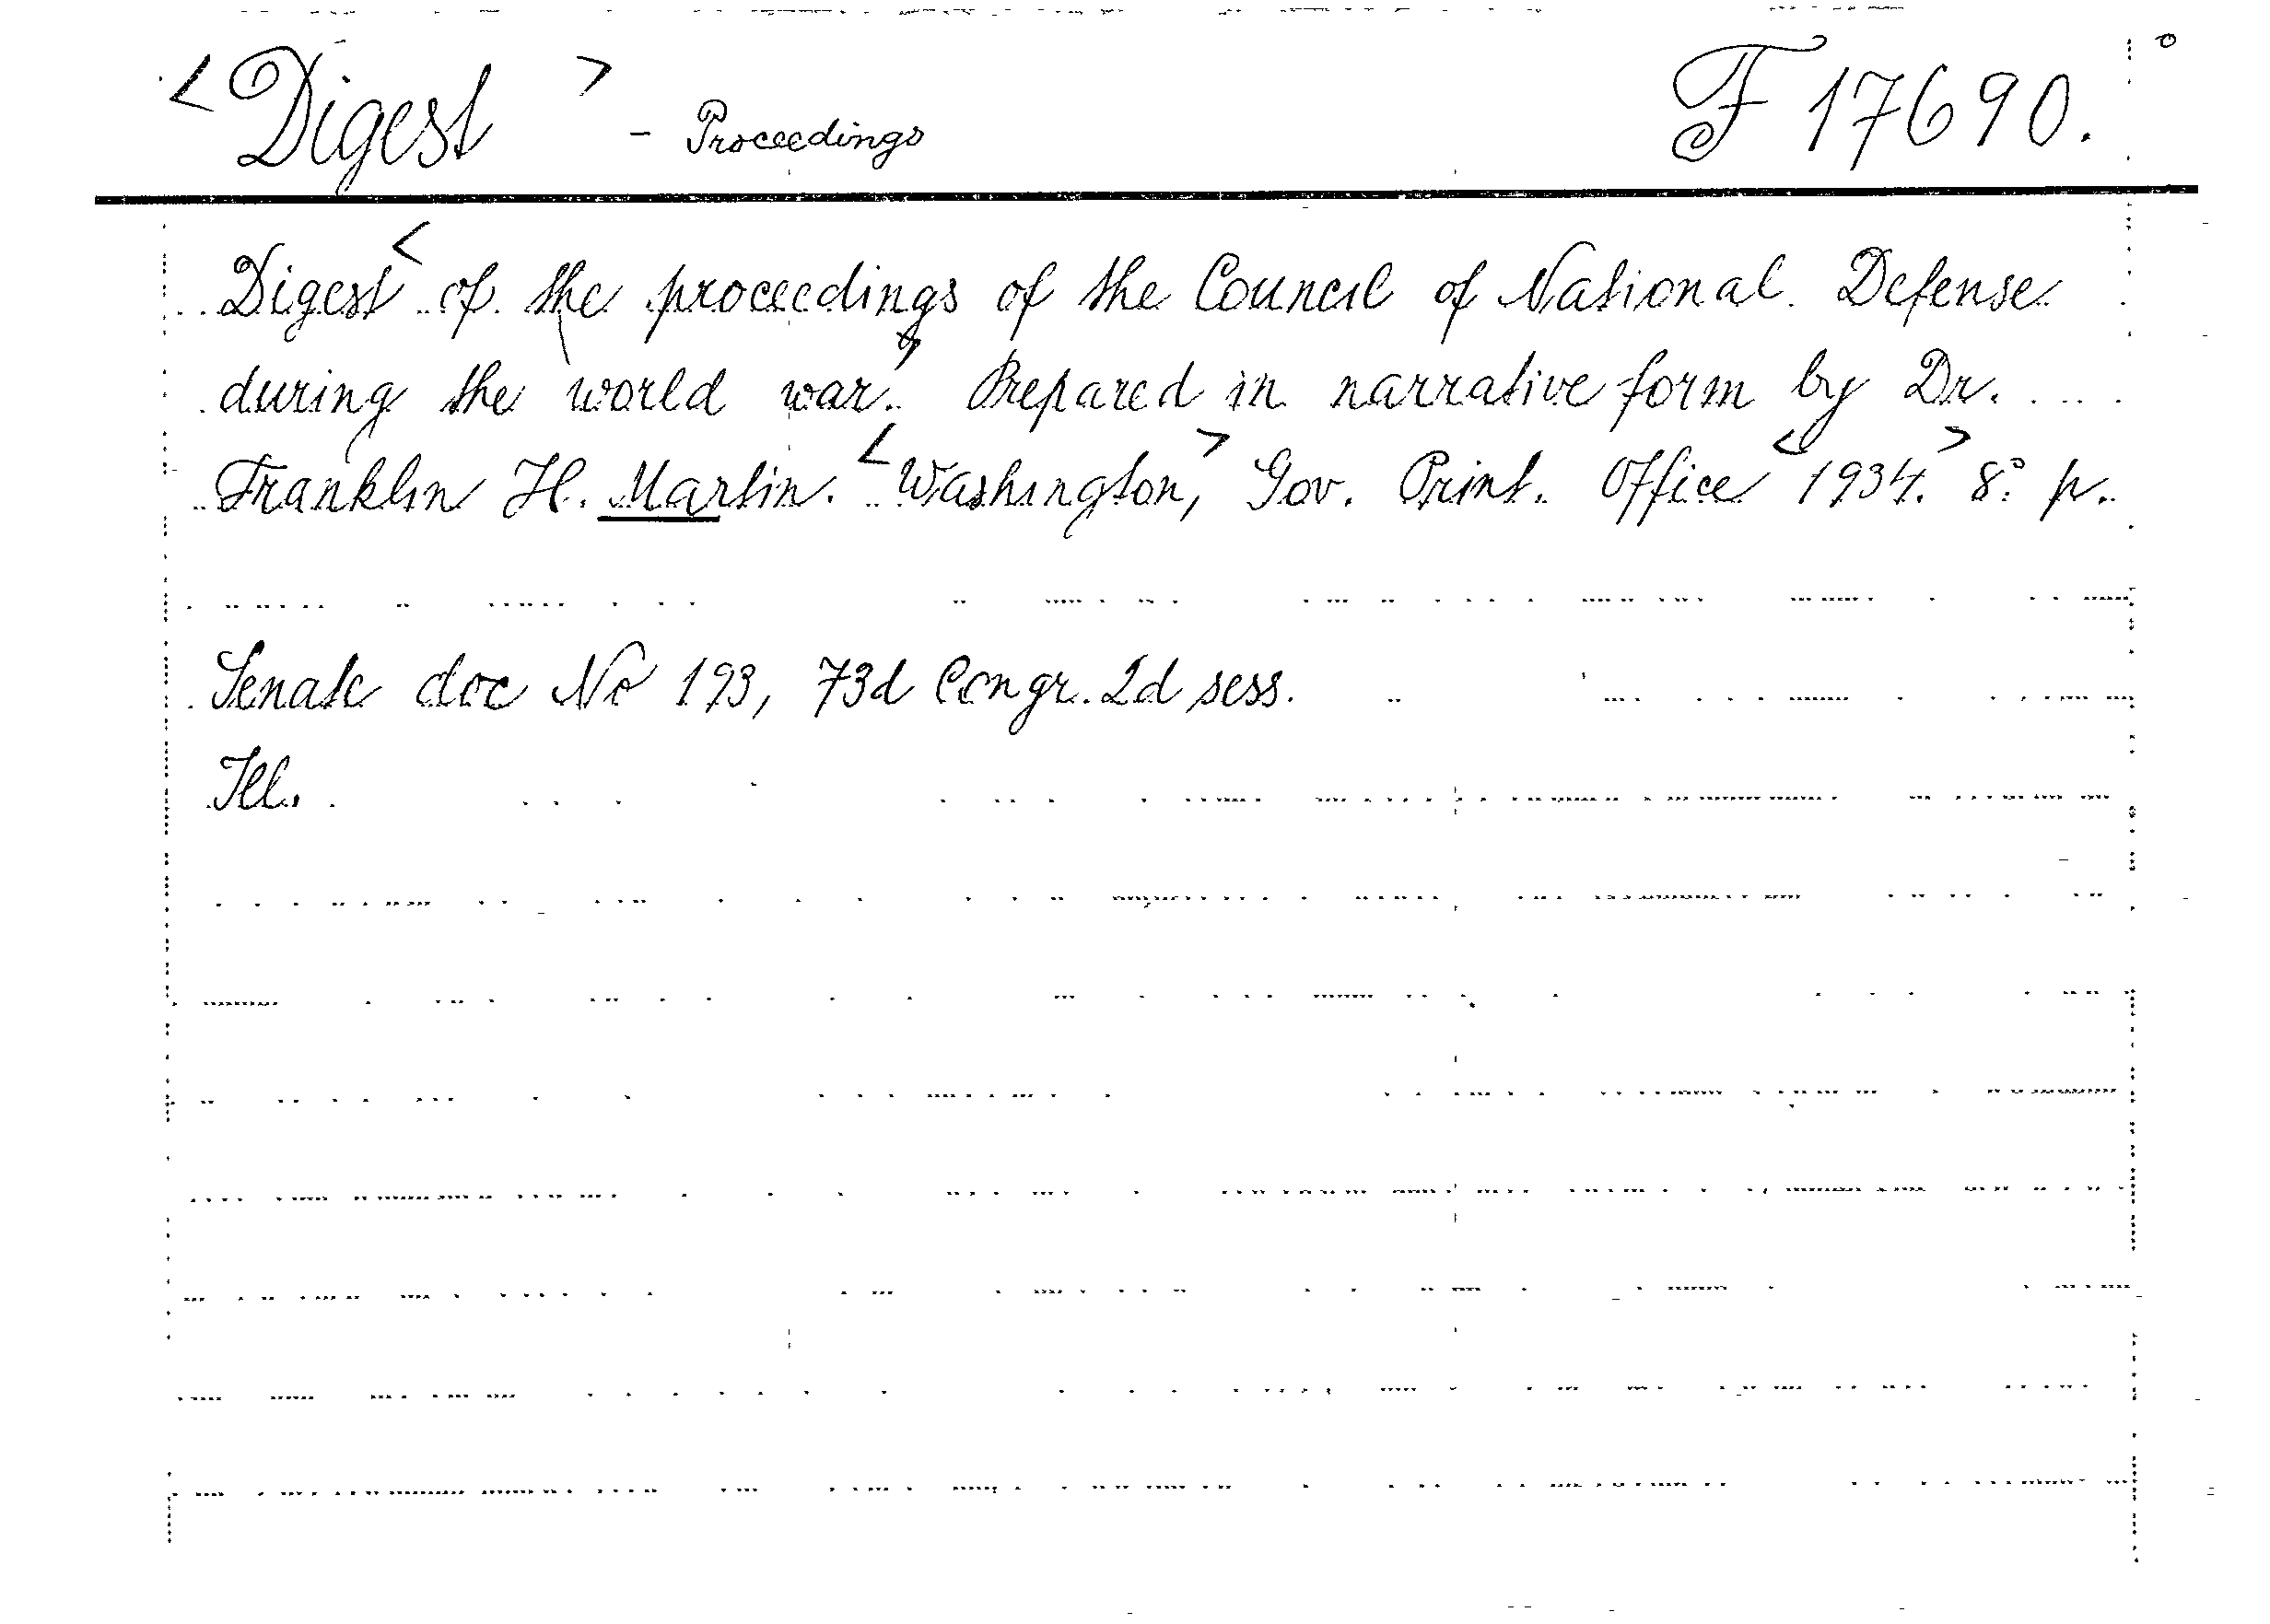 <Digest> - Proceedings F 17690.
Digest< of the proceedings of the Council of National Defense
during the world war.> Prepared in narrative form by Dr.
Franklin H. Martin. <Washington,> Gov. Print. Office <1934.> 8° p.
Senate doc No 193, 73d Congr. 2d sess.
Ill.